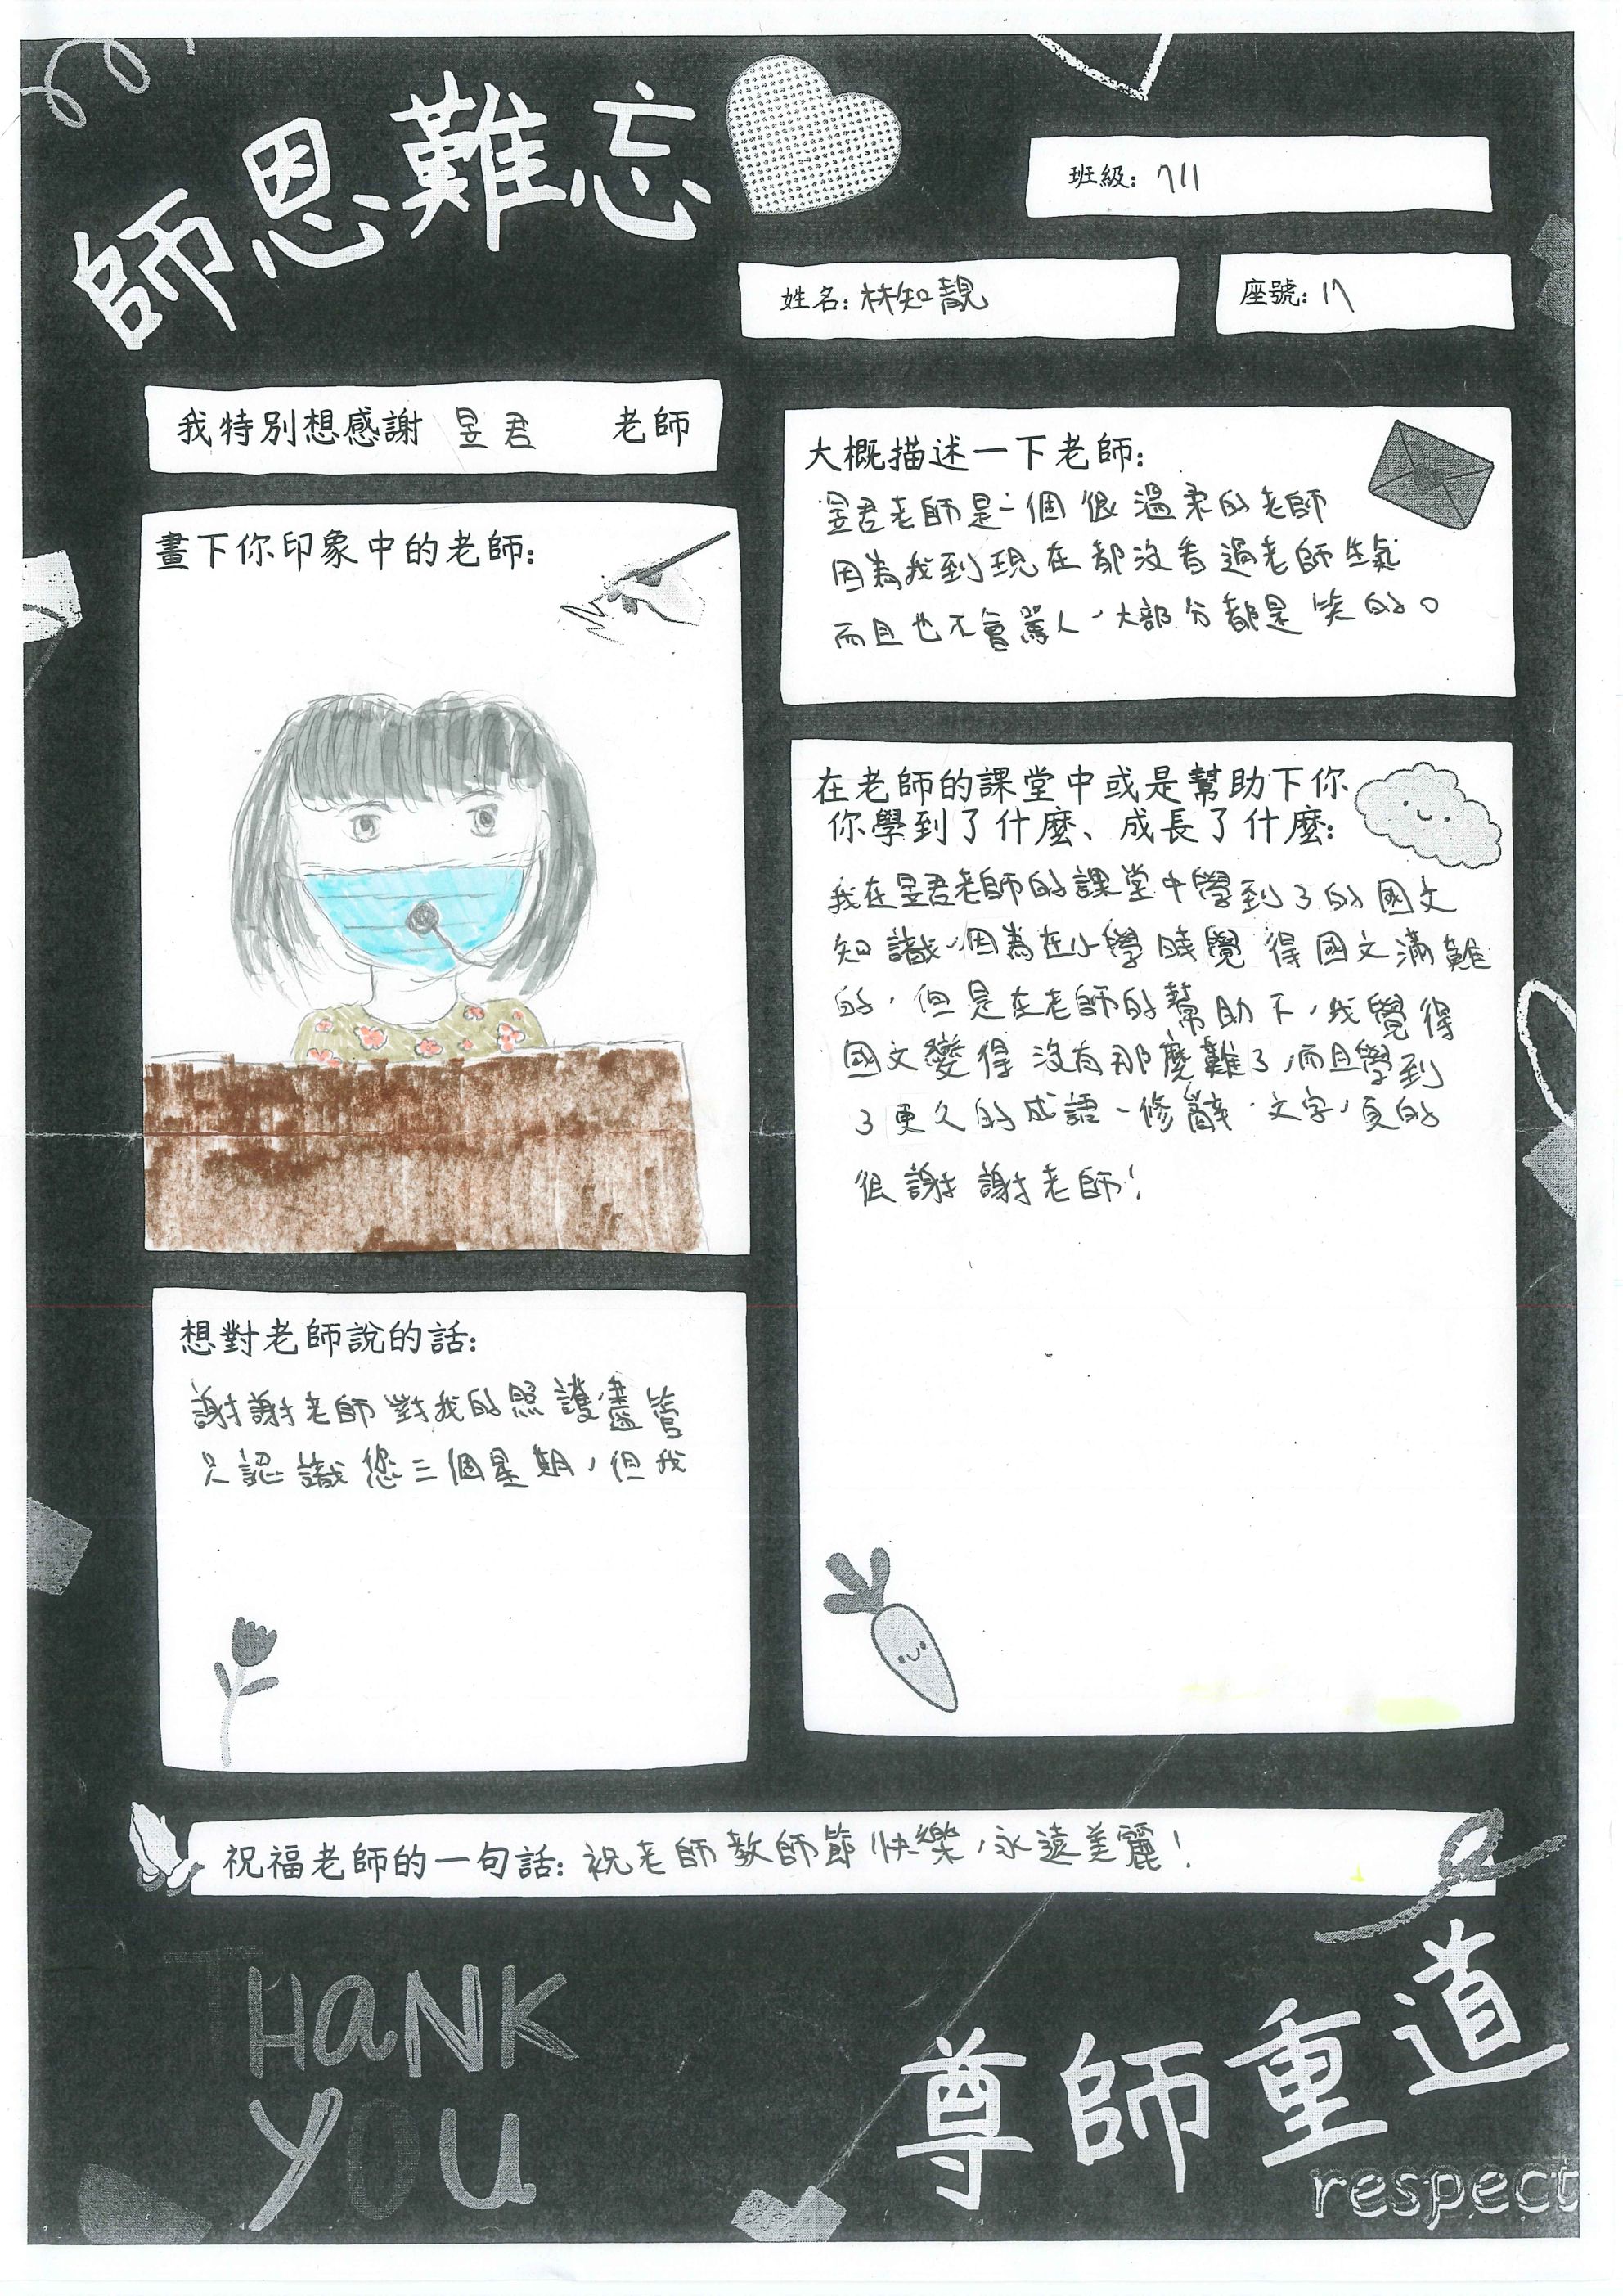 師恩難忘
班級: 711
姓名: 林知靚
座號: 17
我特別想感謝 昱君 老師
畫下你印象中的老師:
大概描述一下老師:
昱君老師是一個很溫柔的老師
因為我到現在都沒看過老師生氣
而且也不會罵人,大部分都是笑的。
在老師的課堂中或是幫助下你
你學到了什麼、成長了什麼:
我在昱君老師的課堂中學到了的國文
知識,因為在小學時覺得國文滿難
的,但是在老師的幫助下,我覺得
國文變得沒有那麼難了,而且學到
了更久的成語、修辭、文字,真的
很謝謝老師!
想對老師說的話:
謝謝老師對我的照護儘管
只認識您三個星期,但我
祝福老師的一句話: 祝老師教師節快樂,永遠美麗!
THANK
YOU
尊師重道
respect